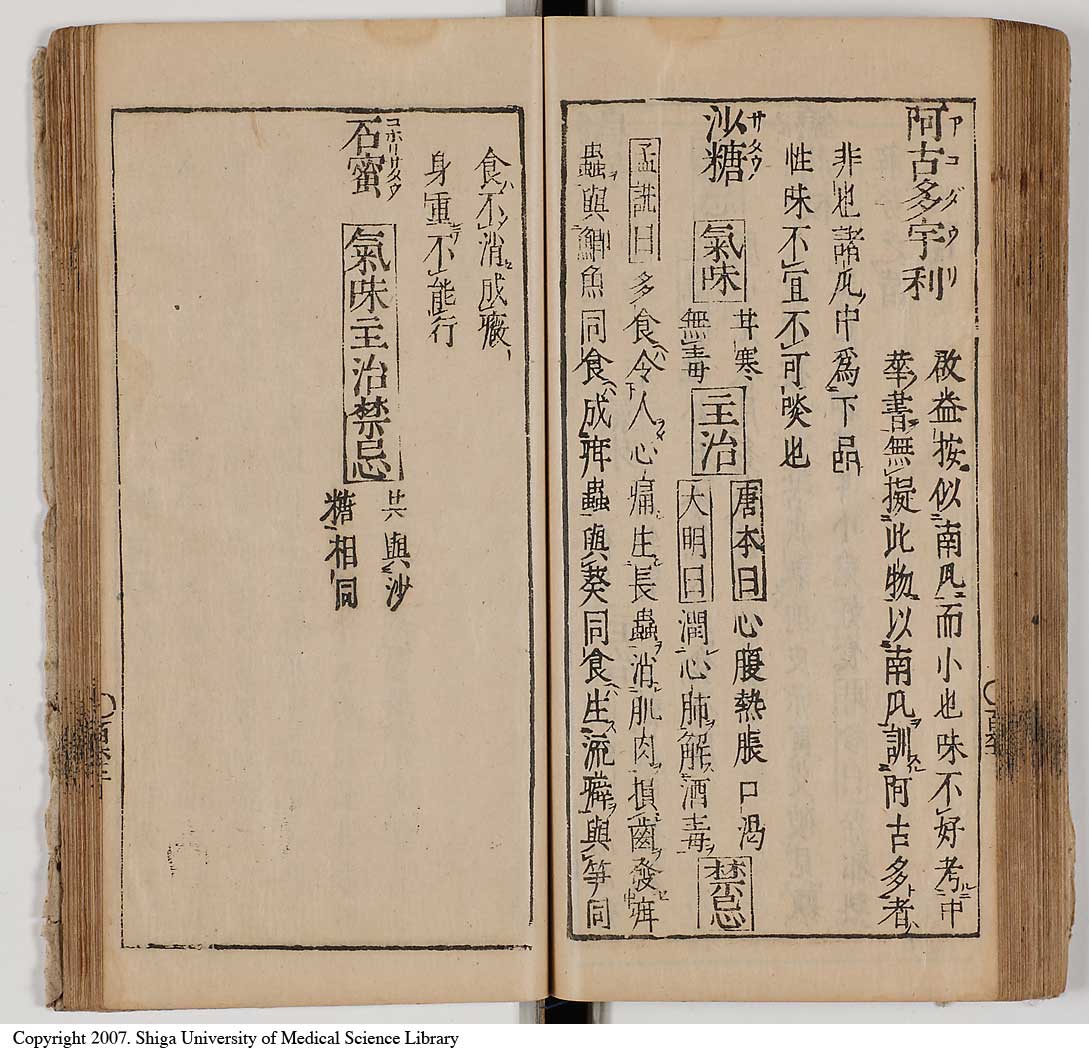 阿古多宇利
アコダウリ
啟益按似南瓜而小也味不好考中
華書無擬此物以南瓜訓阿古多者
非也諸瓜中爲下品
性味不宜不可啖也
沙糖
サタウ
氣味
甘寒
無毒
主治
唐本曰心腹熱脹口渇
大明曰潤心肺解酒毒
禁忌
孟詵曰多食令人心痛生長蟲消肌肉損齒發疳
蟲與鯽魚同食成疳蟲與葵同食生流澼與筍同
食不消成癥
身重不能行
石蜜
コホリサタウ
氣味主治禁忌
共與沙
糖相同
Copyright 2007. Shiga University of Medical Science Library